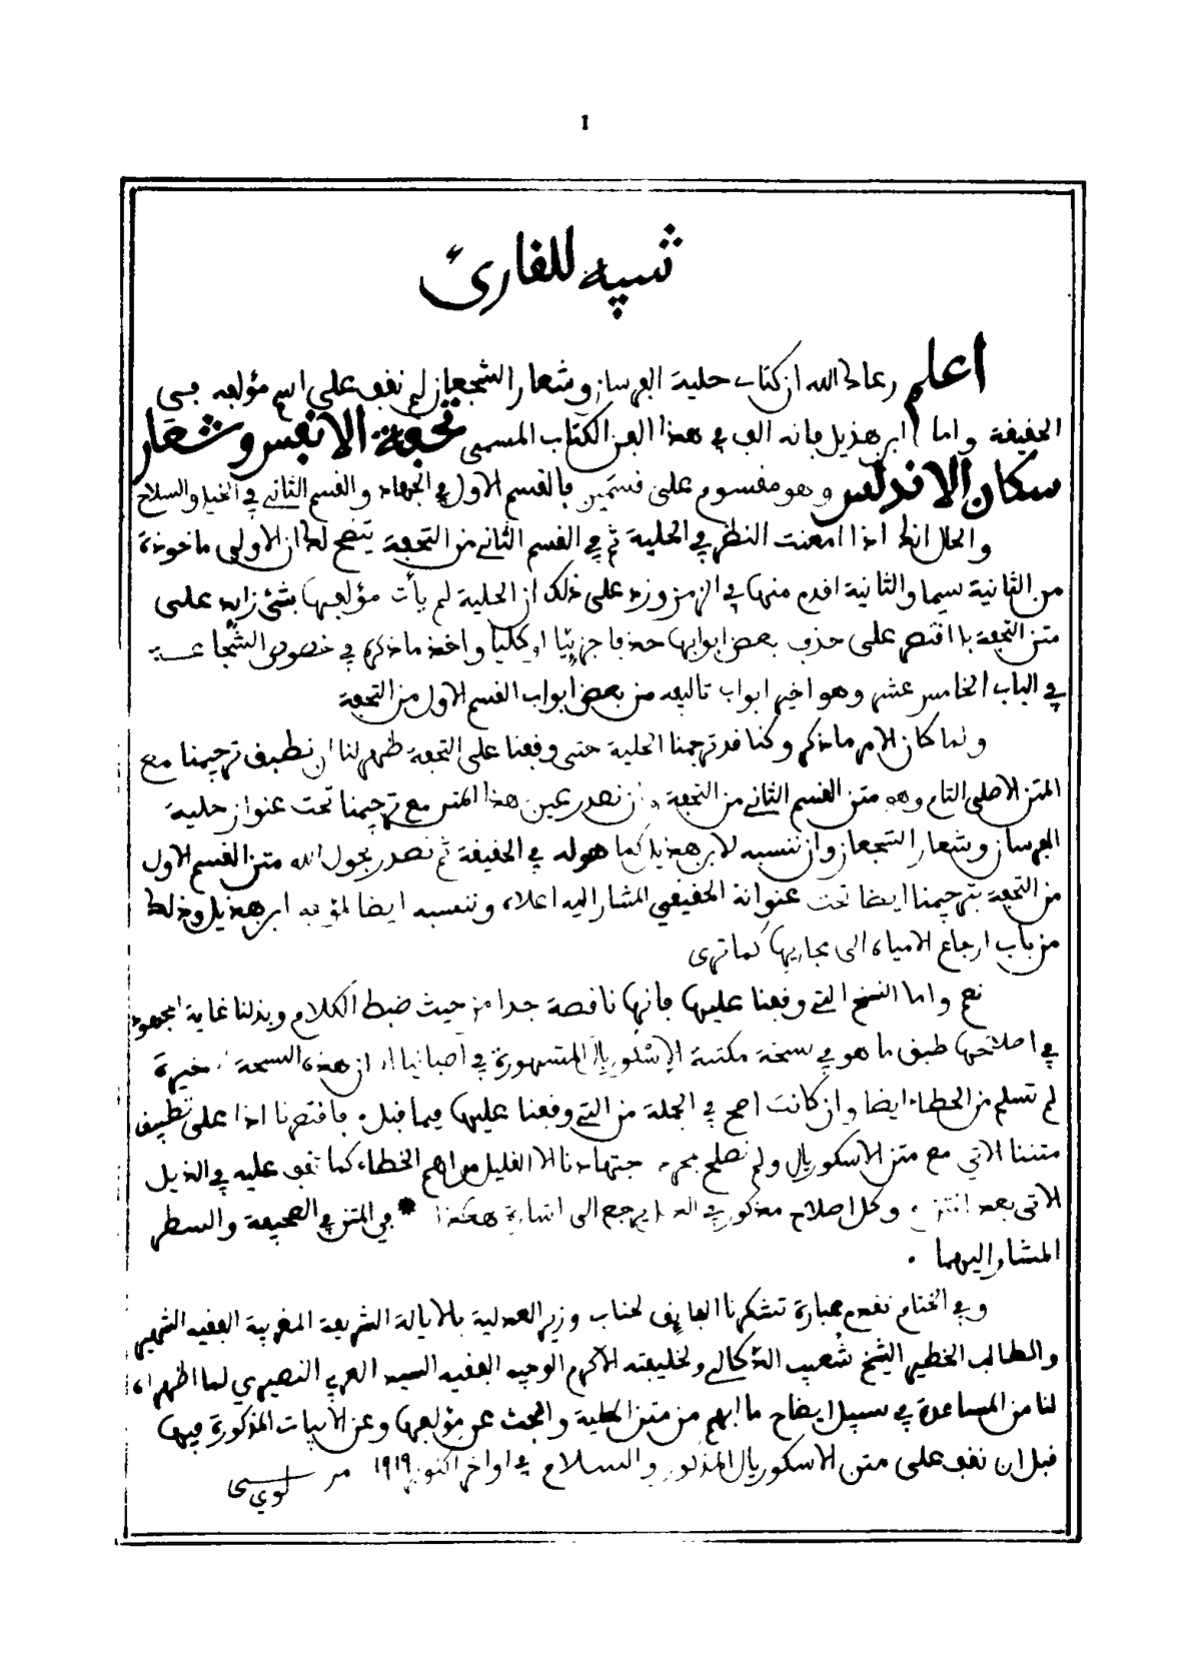 I
تنبيه للقارئ
اعلم رعاك الله ان كتاب حلية الفرسان وشعار الشجعان لم نقف على اسم مؤلفه في
الحقيقة واما ابن هذيل فانه الف في هذا الفن الكتاب المسمى تحفة الانفس وشعار
سكان الاندلس وهو مقسوم على قسمين فالقسم الاول في الجهاد والقسم الثاني في الخيل والسلاح
والحال انك اذا امعنت النظر في الحلية ثم في القسم الثاني من التحفة يتضح لك ان الاولى ماخوذة
من الثانية سيما والثانية اقدم منها في الزمن وزد على ذلك ان الحلية لم يأت مؤلفها بشئ زايد على
متن التحفة بل اقتصر على حذف بعض ابوابها حذفا جزئيا او كليا واخذ ما ذكره في خصوص الشجاعة
في الباب الخامس عشر وهو اخير ابواب تاليفه من بعض ابواب القسم الاول من التحفة
ولما كان الامر ما ذكر وكنا قد ترجمنا الحلية حتى وقفنا على التحفة ظهر لنا ان نطبق ترجمتنا مع
المتن الاصلي التام وهو متن القسم الثاني من التحفة وان نصدر عين هذا المتن مع ترجمتنا تحت عنوان حلية
الفرسان وشعار الشجعان وان ننسبه لابن هذيل كما هو له في الحقيقة ثم نصدر بحول الله متن القسم الاول
من التحفة بترجمتنا ايضا تحت عنوانه الحقيقي المشار اليه اعلاه وننسبه ايضا لمؤلفه ابن هذيل وذلك
من باب ارجاع الامياه الى مجاريها كما ترى
نعم واما النسخ التي وقفنا عليها فانها ناقصة جدا من حيث ضبط الكلام وبذلنا غاية المجهود
في اصلاحها طبق ما هو في نسخة مكتبة الإسكوريال المشهورة في اصبانيا الا ان هذه النسخة الاخيرة
لم تسلم من الخطاء ايضا وان كانت اصح في الجملة من التي وقفنا عليها فيما قبل. فاقتصرنا اذا على تطبيق
متننا الاتي مع متن الاسكوريال ولم نصلح بمجرد اجتهادنا الا القليل من اهم الخطاء كما تقف عليه في الذيل
الاتي بعد المتن. وكل اصلاح مذكور في الذيل يرجع الى اشارة هكذا * في المتن في الصحيفة والسطر
المشار اليهما .
وفي الختام نقدم عبارة تشكرنا الفايق لجناب وزير العدلية بالايالة الشريفة المغربية الفقيه الشهير
والطالب الخطير الشيخ شعيب الدكالي ولخليفته الاكرم الوجيه الفقيه السيد العربي النصيري لما اظهراه
لنا من المساعدة في سبيل ايضاح ما ابهم من متن الحلية والبحث عن مؤلفها وعن الابيات المذكورة فيها
قبل ان نقف على متن الاسكوريال المذكور والسلام في اواخر اكتوبر ١٩١٩ مرسى لوي